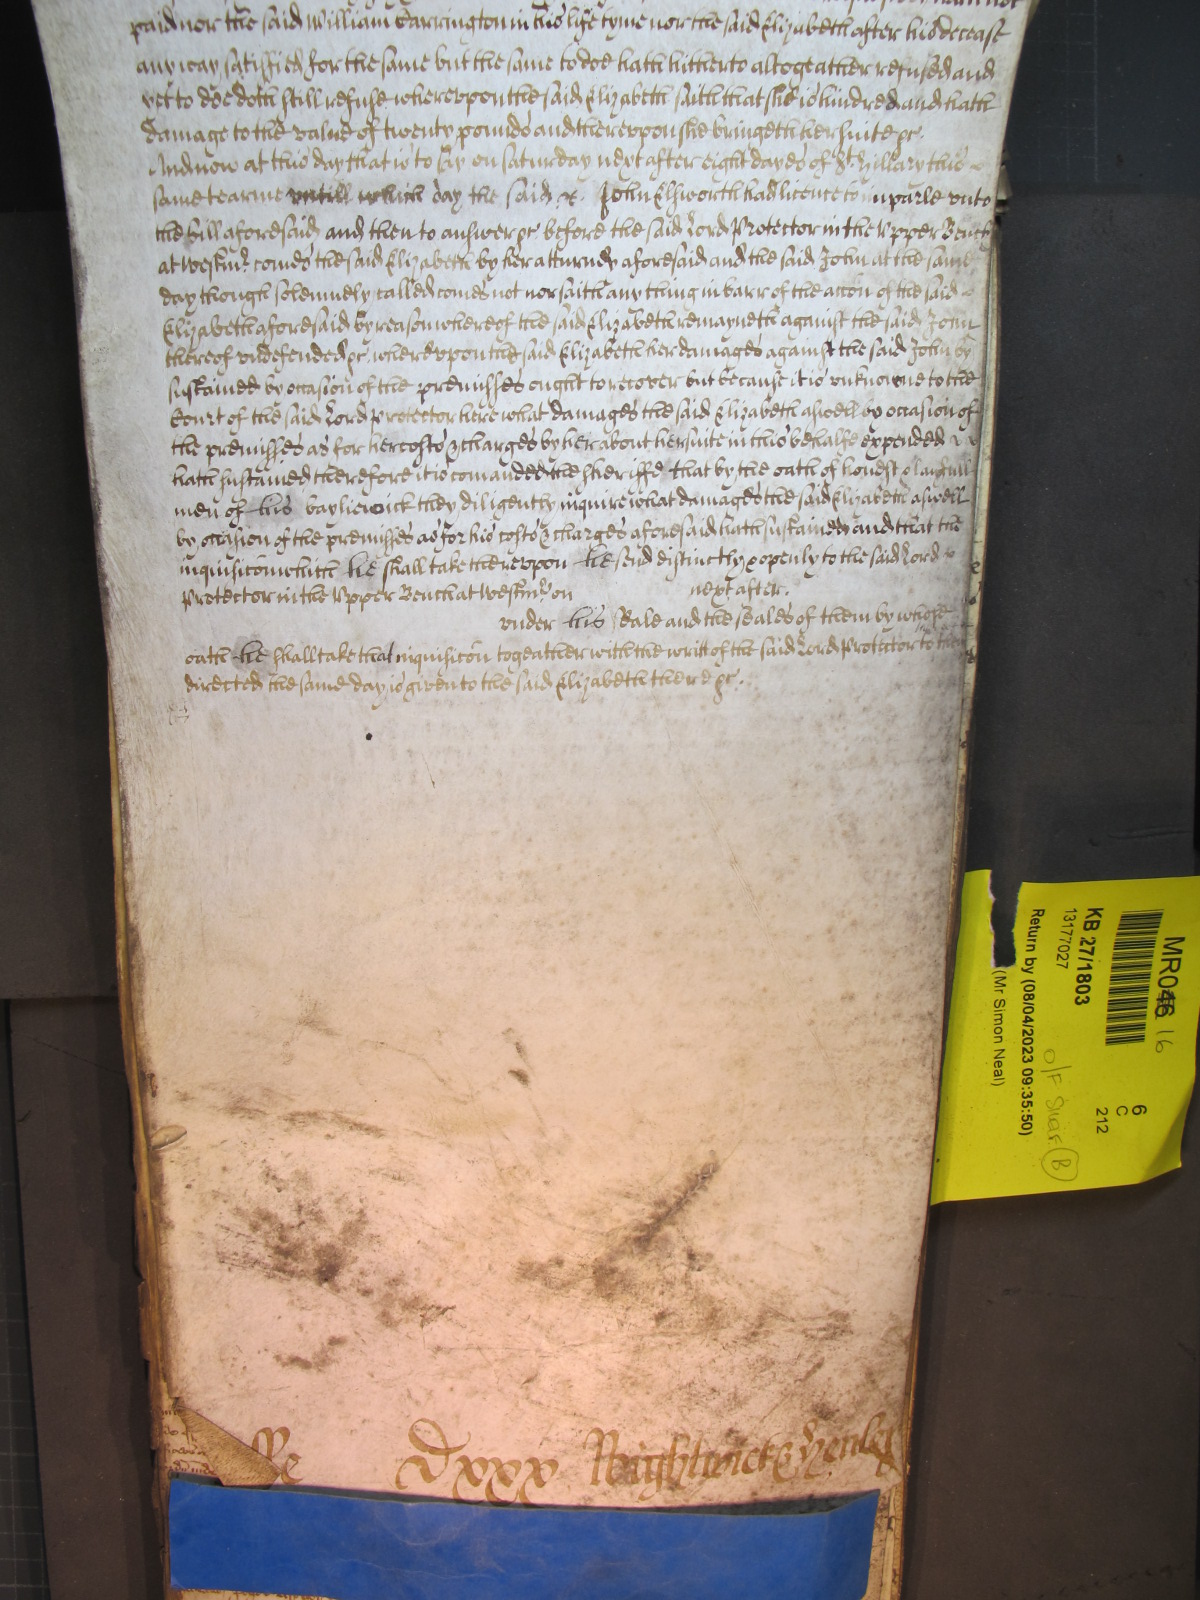 paid nor the said William Carrington in his life tyme nor the said Elizabeth after his decease
any way satisfied for the same but the same to doe hath hitherto altogeather refused and
yet to doe doth still refuse wherevpon the said Elizabeth saith that she is hindred and hath
damage to the value of twenty pounds and therevpon she bringeth her suite &c.
And now at this day that is to say on Saturday next after eight dayes of St. Hillary this
same tearme vntill which day the said &c. John Elsworth had licence to imparle vnto
the bill aforesaid and then to answer &c. before the said Lord Protector in the Vpper Bench
at Westmr. comes the said Elizabeth by her atturney aforesaid and the said John at the same
day though solemnely called comes not nor saith any thing in barr of the accon of the said
Elizabeth aforesaid by reason whereof the said Elizabeth remayneth against the said John
thereof vndefended &c. wherevpon the said Elizabeth her damages against the said John by
sustained by occasion of the premisses ought to recover but because it is vnknowne to the
Court of the said Lord Protector here what damages the said Elizabeth aswell by occasion of
the premisses as for her costs & charges by her about her suite in this behalfe expended
hath sustained therefore it is comanded the sheriffe that by the oath of honest & lawfull
men of his bayliewick they diligently inquire what damages the said Elizabeth aswell
by occasion of the premisses as for his costs & charges aforesaid hath sustained and that the
inquisicon which he shall take therevpon he send distinctly & openly to the said Lord
Protector in the Vpper Bench at Westmr. on next after.
vnder his Seale and the seales of them by whose
oath he shall take that inquisicon togeather with the writt of the said Lord Protector to them
directed the same day is given to the said Elizabeth there &c.
Ro Dxxx Rightwick & Henley
MR046 16
KB 27/1803
13177027
Return by (08/04/2023 09:35:50)
(Mr Simon Neal)
6
C
212
O/F
B